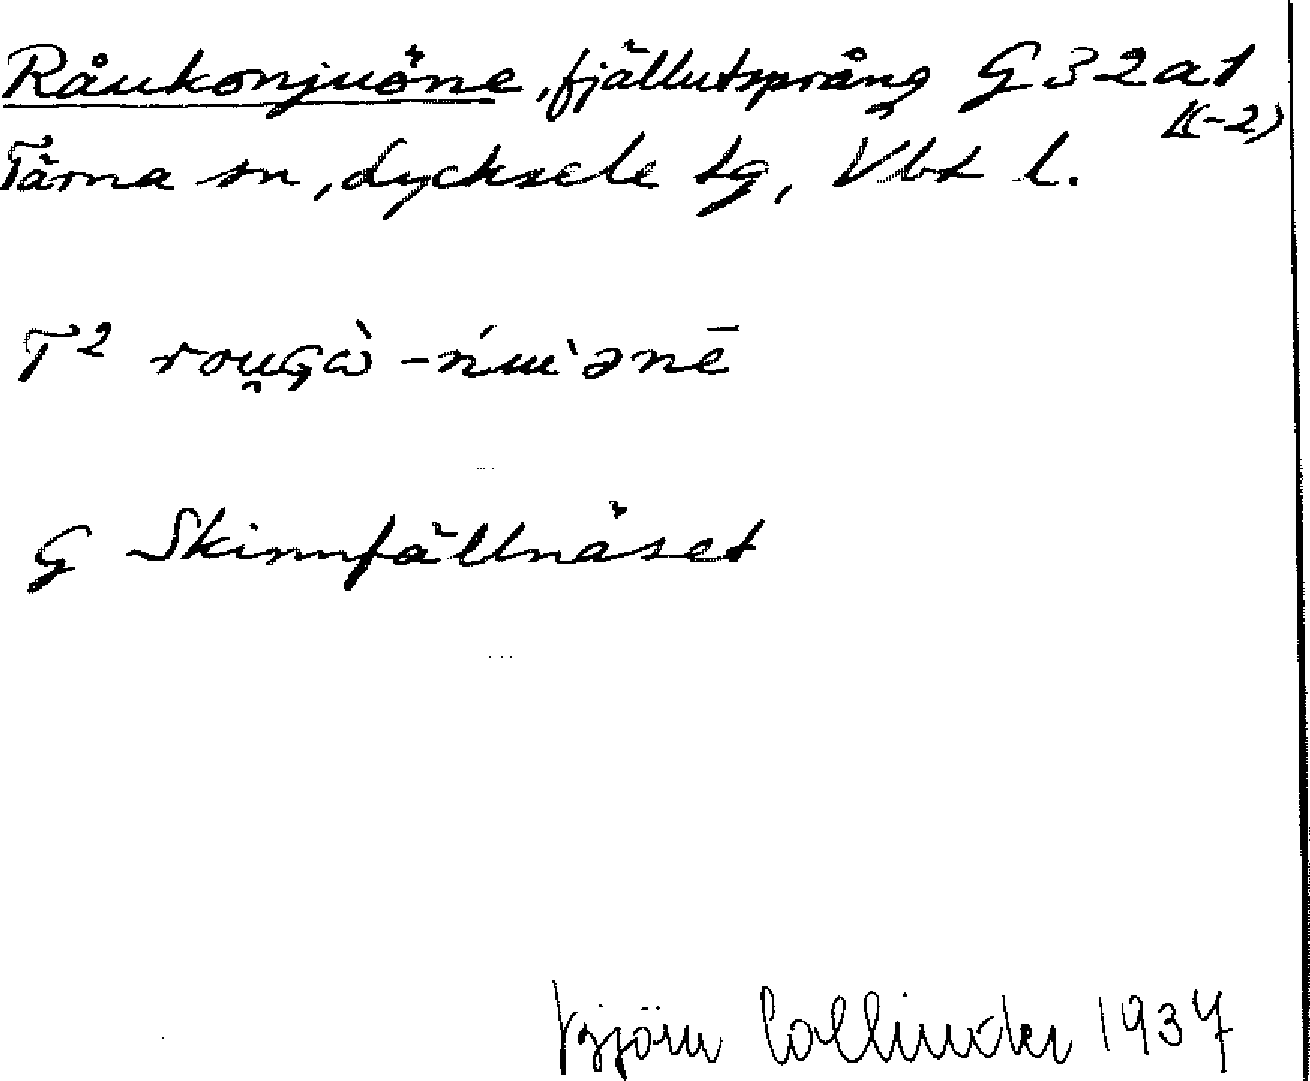 Råukonjuöne, fjällutsprång G 32 a 1
(1-2)
Tärna sn, Lycksele lg, Vbt l.
T² rou̯Gὼ -ńɯ̀ənē
G Skinnfällnäset
Björn Collinder 1937